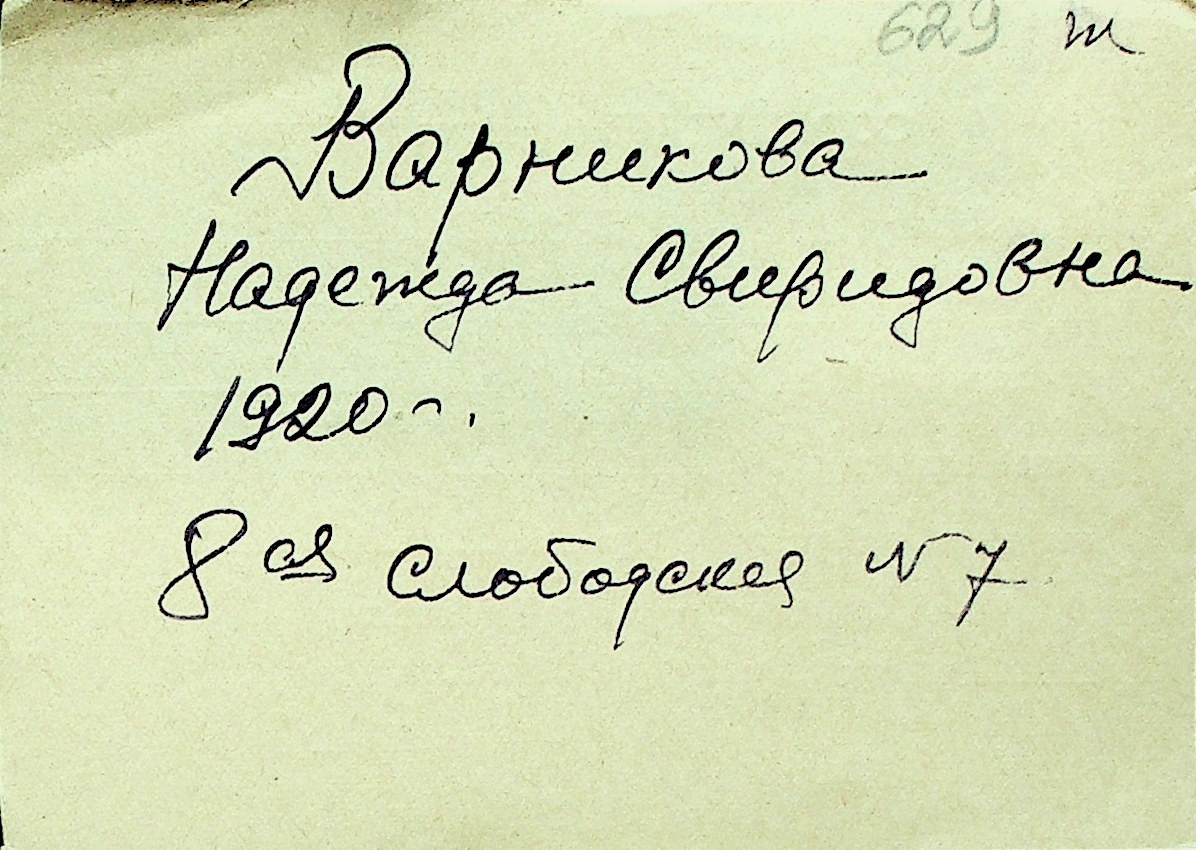 629 т
Варникова
Надежда Свиридовна
1920 г.
8 ая Слободская N 7